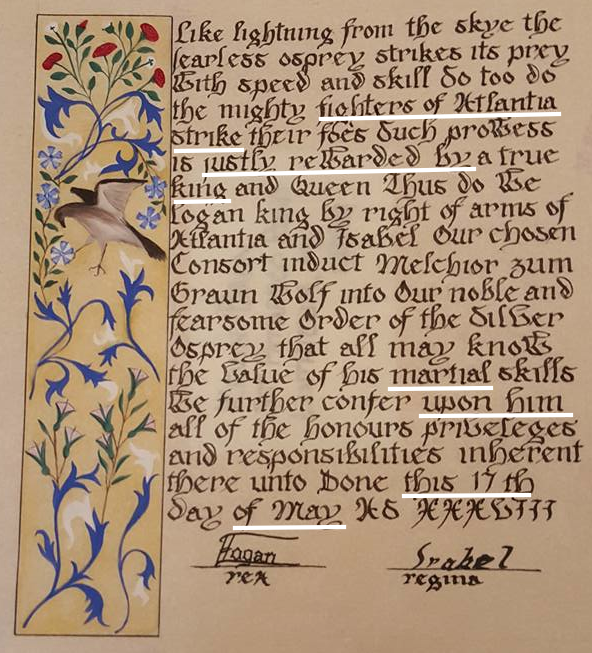 Like lightning from the skye the
fearless osprey strikes its prey
With speed and skill So too do
the mighty fighters of Atlantia
strike their foes Such prowess
is justly rewarded by a true
king and Queen Thus do We
Logan king by right of arms of
Atlantia and Isabel Our chosen
Consort induct Melchior zum
Graun Wolf into Our noble and
fearsome Order of the Silver
Osprey that all may know
the value of his martial skills
We further confer upon him
all of the honours priveleges
and responsibilities inherent
there unto Done this 17 th
day of May AS XXXVIII
Logan Isabel
rex regina